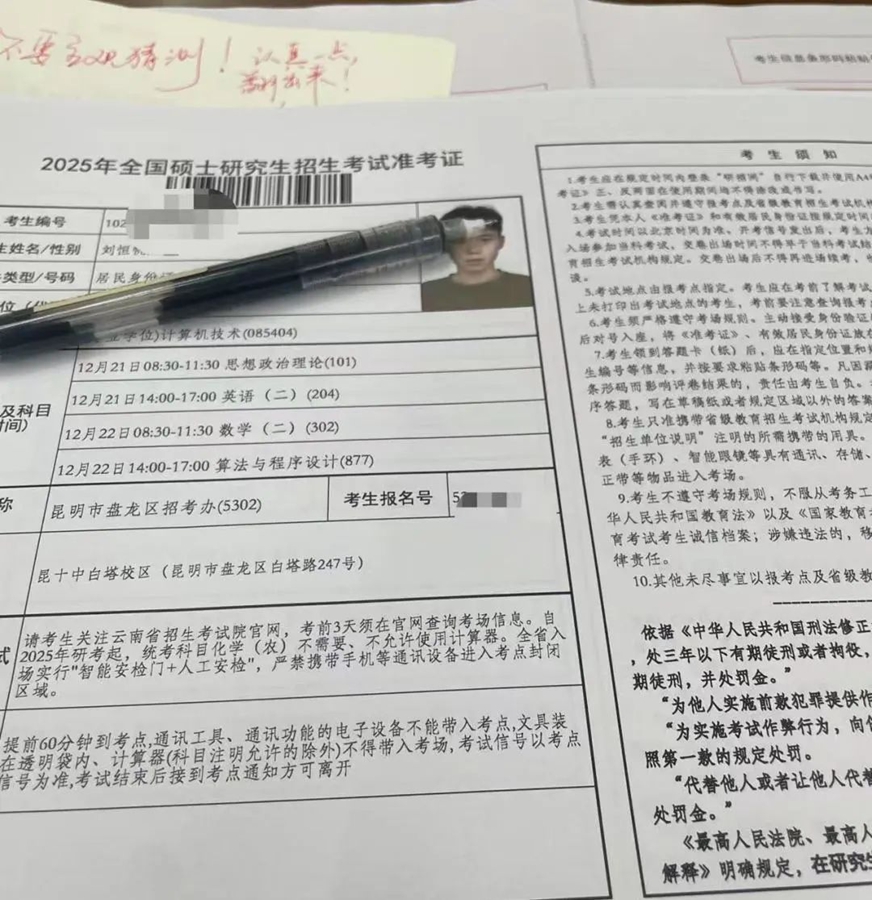 不要主观猜测！认真一点，
考生信息条形码粘贴
2025年全国硕士研究生招生考试准考证
考生编号
102
生姓名/性别
刘恒
类型/号码
居民身份证
位（代
学位)计算机技术(085404)
及科目
时间)
12月21日08:30-11:30 思想政治理论(101)
12月21日14:00-17:00 英语（二）(204)
12月22日08:30-11:30 数学（二）(302)
12月22日14:00-17:00 算法与程序设计(877)
称
昆明市盘龙区招考办(5302)
考生报名号
昆十中白塔校区（昆明市盘龙区白塔路247号）
试
请考生关注云南省招生考试院官网，考前3天须在官网查询考场信息。自
2025年研考起，统考科目化学（农）不需要、不允许使用计算器。全省入
场实行"智能安检门+人工安检"，严禁携带手机等通讯设备进入考点封闭
区域。
提前60分钟到考点,通讯工具、通讯功能的电子设备不能带入考点,文具装
在透明袋内、计算器(科目注明允许的除外)不得带入考场,考试信号以考点
信号为准,考试结束后接到考点通知方可离开
考生须知
1.考生应在规定时间内登录“研招网”自行下载并使用A4
考证》正、反两面在使用期间均不得涂改或书写。
2.考生需认真查阅并遵守报考点及省级教育招生考试机
3.考生凭本人《准考证》和有效居民身份证按规定时间
4.考试时间以北京时间为准。开考信号发出后，考生方
入场参加当科考试，交卷出场时间不得早于当科考试结
育招生考试机构规定。交卷出场后不得再进场续考，也
谈。
5.考试地点由报考点指定。考生应在考前了解考试
上未打印出考试地点的考生，考前要注意查询报考点
6.考生须严格遵守考场规则。主动接受身份验证
后对号入座，将《准考证》、有效居民身份证放在
7.考生领到答题卡（纸）后，应在指定位置和
生编号等信息，并按要求粘贴条形码等。凡因
条形码而影响评卷结果的，责任由考生自负。
序答题，写在草稿纸或者规定区域以外的答案
8.考生只准携带省级教育招生考试机构规定
“招生单位说明”注明的所需携带的用具。
表（手环）、智能眼镜等具有通讯、存储、
正带等物品进入考场。
9.考生不遵守考场规则，不服从考务工
华人民共和国教育法》以及《国家教育
育考试考生诚信档案；涉嫌违法的，移
律责任。
10.其他未尽事宜以报考点及省级教
依据《中华人民共和国刑法修正
，处三年以下有期徒刑或者拘役，
期徒刑，并处罚金。”
“为他人实施前款犯罪提供作
“为实施考试作弊行为，向
照第一款的规定处罚。
“代替他人或者让他人代替
处罚金。”
《最高人民法院、最高人
解释》明确规定，在研究生